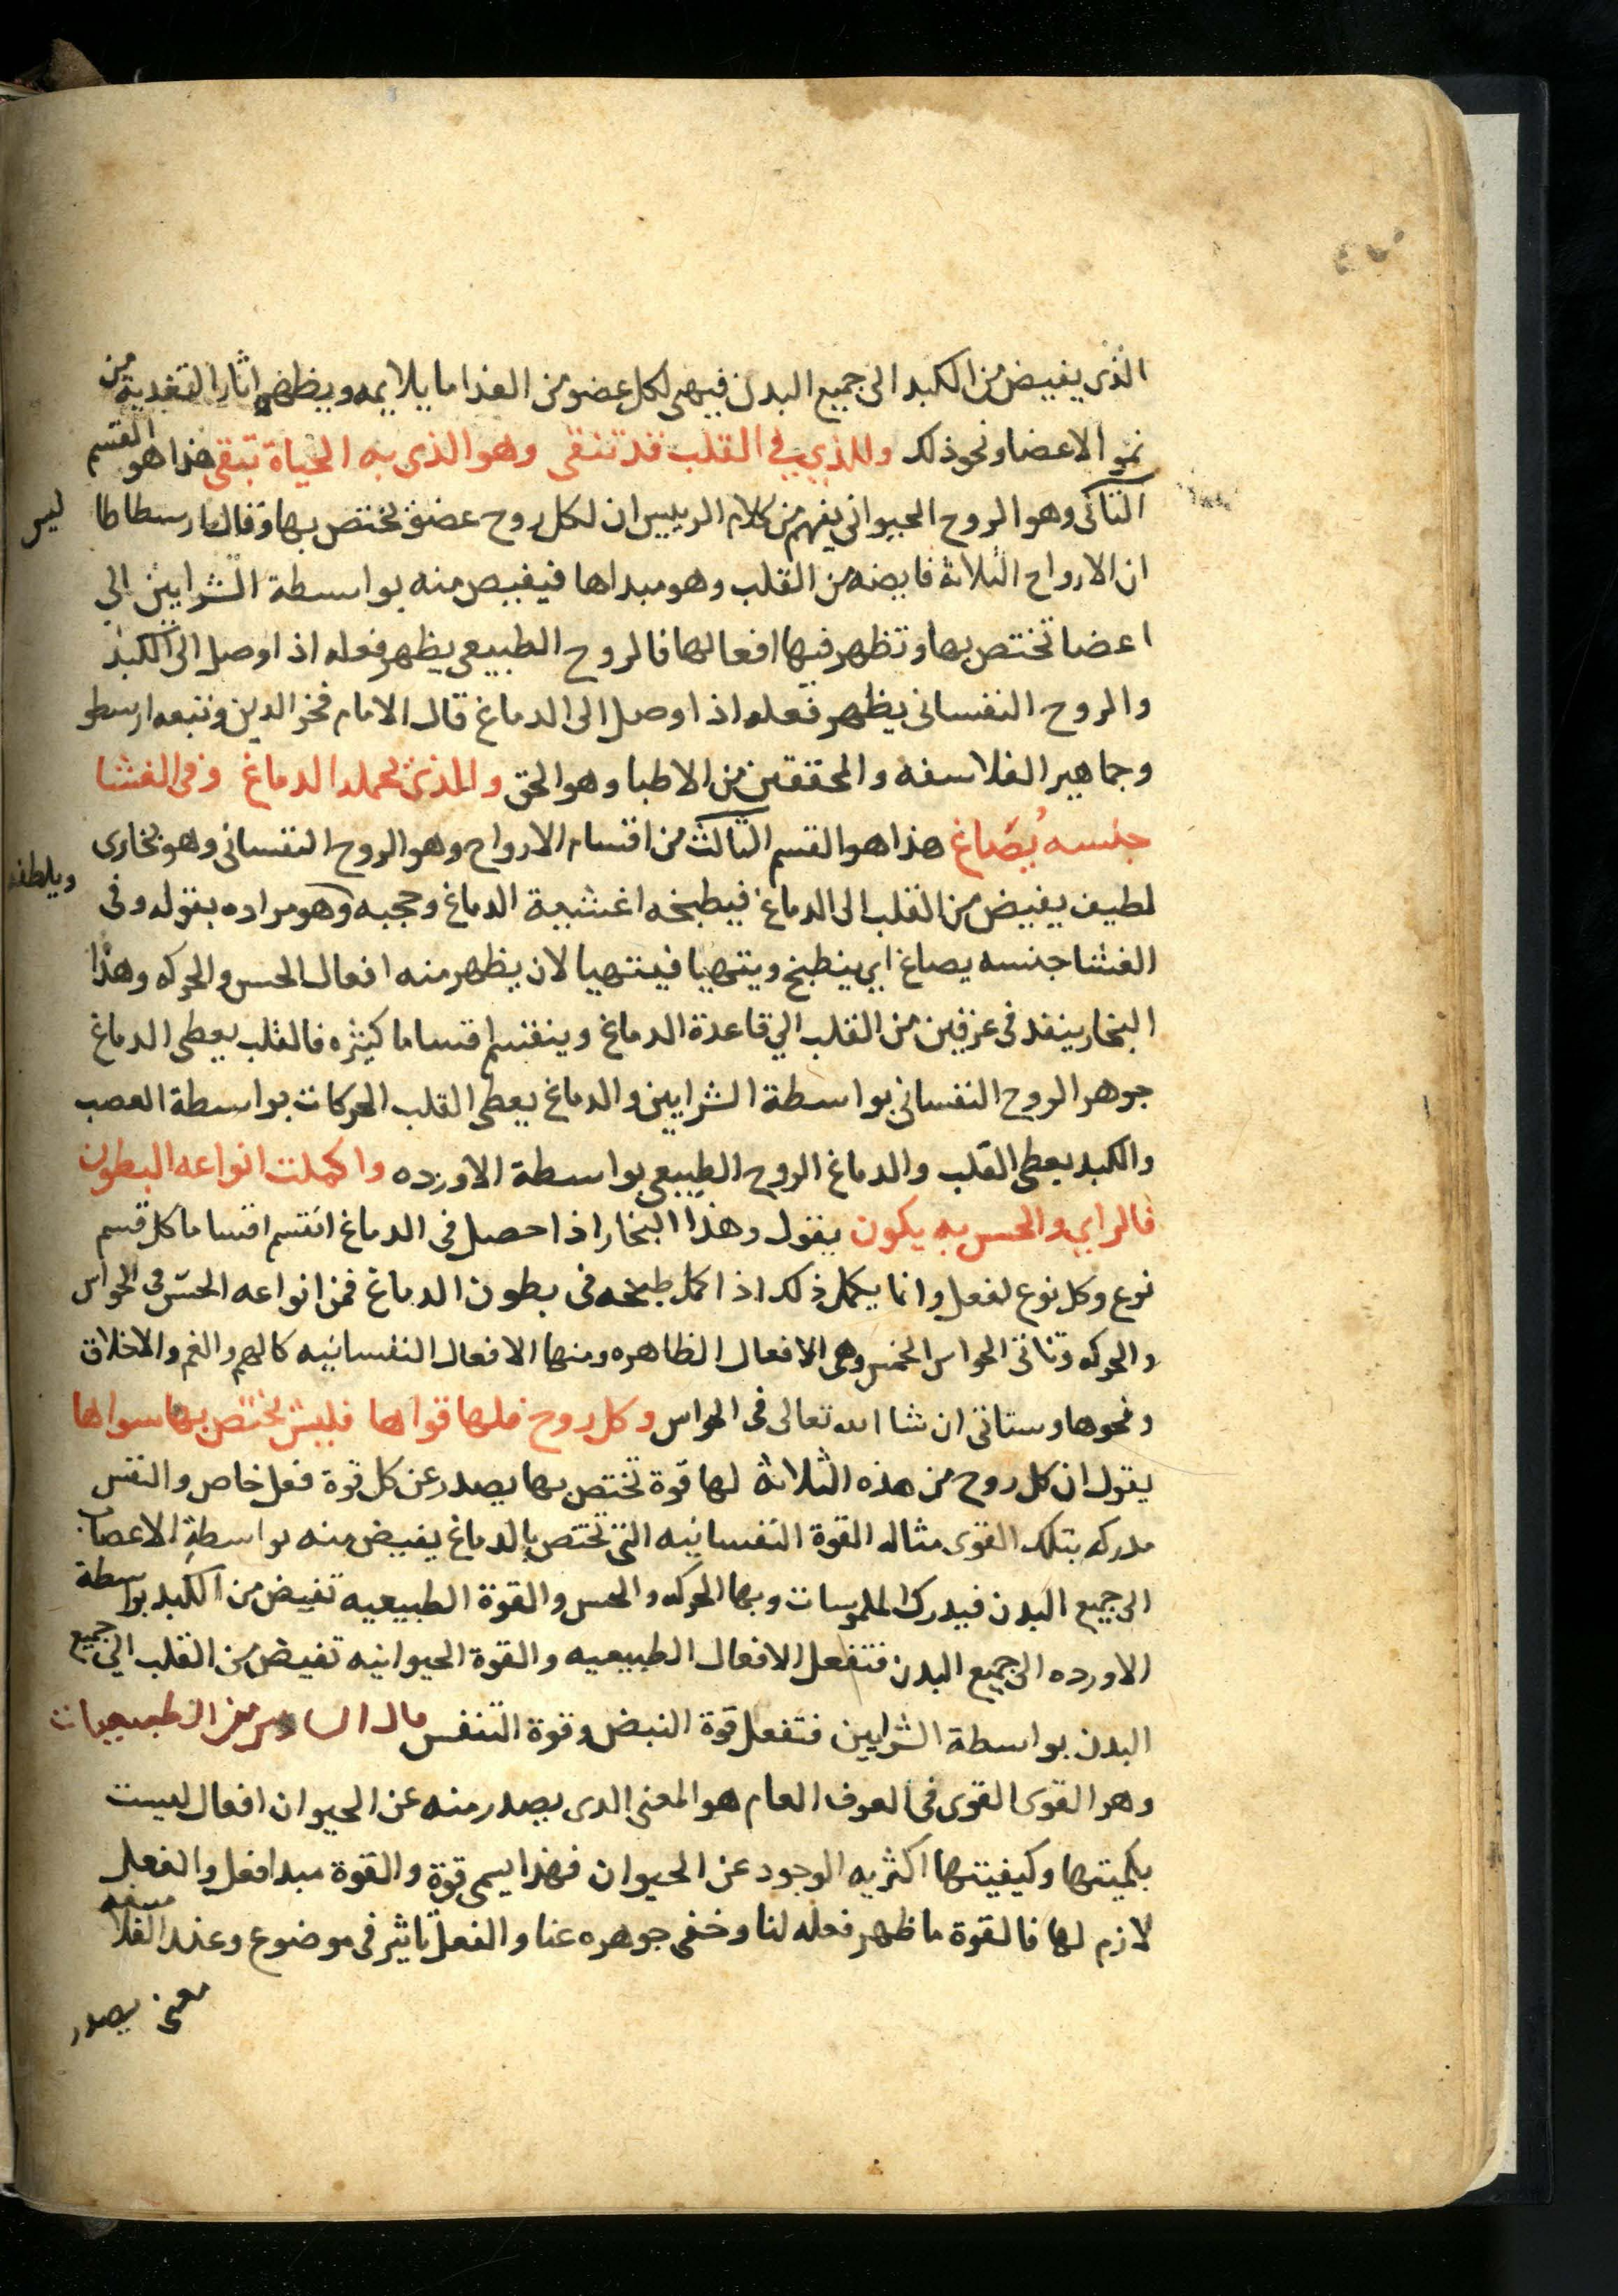 الذى يفيض من الكبد الى جميع البدن فيهى لكل عضو من الغذا ما يلايمه ويظهر اثار التغدية من
نمو الاعضا ونحو ذلك وللذي في القلب قد تنقى وهو الذى به الحياة تبقى هذا هو القسم
الثانى وهو الروح الحيوانى يفهم من كلام الرييس ان لكل روح عضو تختص بها وقال ارسطاطا ليس
ان الارواح الثلاثة فايضه من القلب وهو مبداها فيفيض منه بواسطة الشرايين الي
اعضا تختص بها وتظهر فيها افعالها فالروح الطبيعى يظهر فعله اذا وصل الى الكبد
والروح النفسانى يظهر فعله اذا وصل الى الدماغ قال الامام فخر الدين وتبعه ارسطو
وجماهير الفلاسفه والمحققين من الاطبا وهو الحق والذى يحمله الدماغ وفى الغشا
جنسه يصاغ هذا هو القسم الثالث من اقسام الارواح وهو الروح النفسانى وهو بخارى
لطيف يفيض من القلب الى الدماغ فيطبخه اغشيية الدماغ وحجبه ويلطفه وهو مراده بقوله وفى
الغشا جنسه يصاغ اي ينطبخ ويتهيا فيتهيا لان يظهر منه افعال الحس والحركه وهذا
البخار ينفد فى عرقين من القلب الي قاعدة الدماغ وينقسم اقساما كثيره فالقلب يعطى الدماغ
جوهر الروح النفسانى بواسطة الشرايين والدماغ يعطى القلب الحركات بواسطة العصب
والكبد يعطى القلب والدماغ الروح الطبيعى بواسطة الاورده واكملت انواعه البطون
فالراي والحس به يكون يقول وهذا البخار اذا حصل فى الدماغ انقسم اقساما كل قسم
نوع وكل نوع لفعل وانما يكمل ذلك اذا كمل طبخه فى بطون الدماغ فمن انواعه الحس فى الحواس
والحركه وتاتى الحواس الخمس وهى الافعال الظاهره ومنها الافعال النفسانيه كالهم والغم والاخلاق
ونحوها وستاتى ان شا الله تعالى فى الحواس وكل روح فلها قواها فليس يختص بها سواها
يقول ان كل روح من هذه الثلاثة لها قوة تختص بها يصدر عن كل قوة فعل خاص والنفس
مدركه بتلك القوى مثاله القوة النفسانيه التى تختص بالدماغ يفيض منه بواسطة الاعصاب
الى جميع البدن فيدرك الملموسات وبها الحركه والحس والقوة الطبيعيه تفيض من الكبد بواسطة
الاورده الى جميع البدن فتفعل الافعال الطبيعيه والقوة الحيوانيه تفيض من القلب الي جميع
البدن بواسطة الشرايين فتفعل قوة النبض وقوة التنفس قال السادس من الطبيعيات
وهو القوى القوى فى العرف العام هو المعنى الدى يصدر منه عن الحيوان افعال ليست
بكميتها وكيفيتها اكثريه الوجود عن الحيوان فهذا يسمى قوة والقوة مبدا فعل والفعل
لازم لها فالقوة ما ظهر فعله لنا وخفى جوهره عنا والفعل تاثير فى موضوع وعند الفلاسفه
معنى يصدر